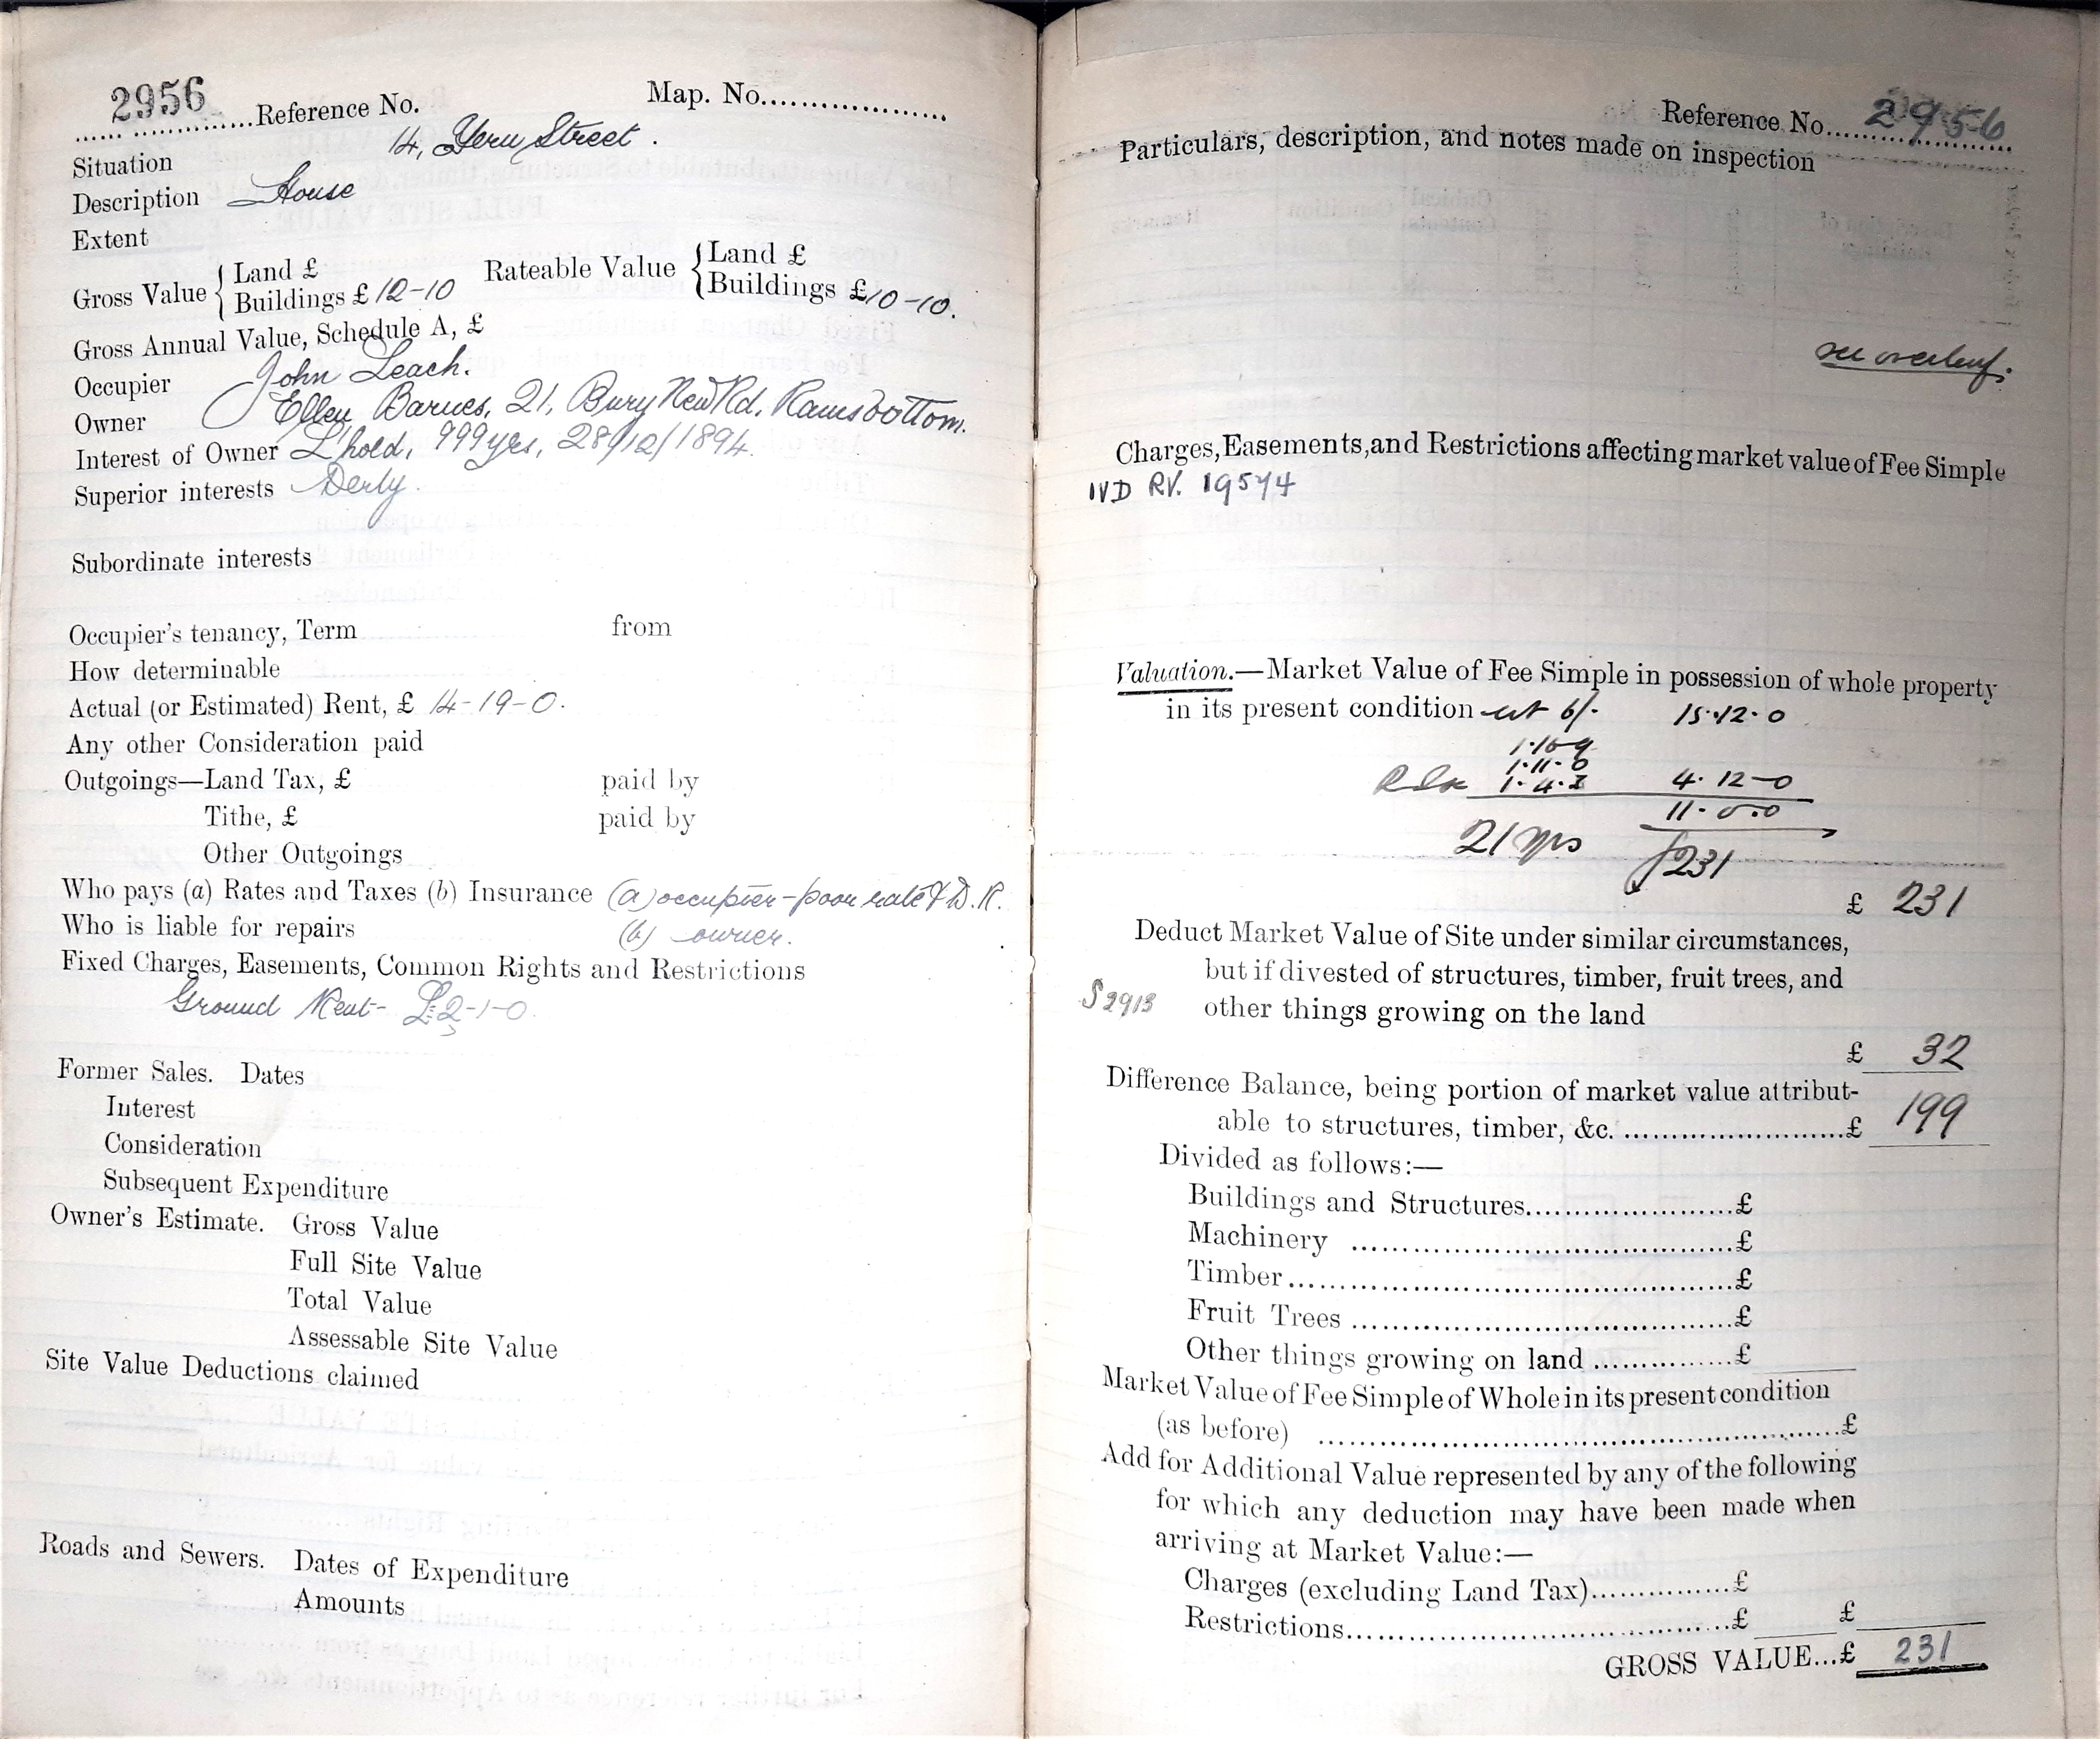 2956
Reference No.
Map. No.
Situation 14, Fern Street.
Description House
Extent
Gross Value { Land £
Buildings £ 12-10
Rateable Value { Land £
Buildings £10-10.
Gross Annual Value, Schedule A, £
Occupier John Leach.
Owner Ellen Barnes, 21, Bury New Rd, Ramsbottom.
Interest of Owner L'hold, 999 yrs, 28/12/1894.
Superior interests Derby.
Subordinate interests
Occupier's tenancy, Term from
How determinable
Actual (or Estimated) Rent, £ 14-19-0.
Any other Consideration paid
Outgoings—Land Tax, £ paid by
Tithe, £ paid by
Other Outgoings
Who pays (a) Rates and Taxes (b) Insurance (a) occupier - poor rate & D.R.
Who is liable for repairs (b) owner.
Fixed Charges, Easements, Common Rights and Restrictions
Ground Rent- £2-1-0.
Former Sales. Dates
Interest
Consideration
Subsequent Expenditure
Owner's Estimate. Gross Value
Full Site Value
Total Value
Assessable Site Value
Site Value Deductions claimed
Roads and Sewers. Dates of Expenditure
Amounts
Reference No. 2956
Particulars, description, and notes made on inspection
see overleaf.
Charges, Easements, and Restrictions affecting market value of Fee Simple
IVD RV. 19574
Valuation.—Market Value of Fee Simple in possession of whole property
in its present condition 6/- 15.12.0
1.11.0
4.12-0
11.0.0
21 yrs £231
£ 231
Deduct Market Value of Site under similar circumstances,
but if divested of structures, timber, fruit trees, and
S2913 other things growing on the land
£ 32
Difference Balance, being portion of market value attribut-
able to structures, timber, &c. £ 199
Divided as follows:—
Buildings and Structures £
Machinery £
Timber £
Fruit Trees £
Other things growing on land £
Market Value of Fee Simple of Whole in its present condition
(as before) £
Add for Additional Value represented by any of the following
for which any deduction may have been made when
arriving at Market Value:—
Charges (excluding Land Tax) £
Restrictions £ £
GROSS VALUE...£ 231